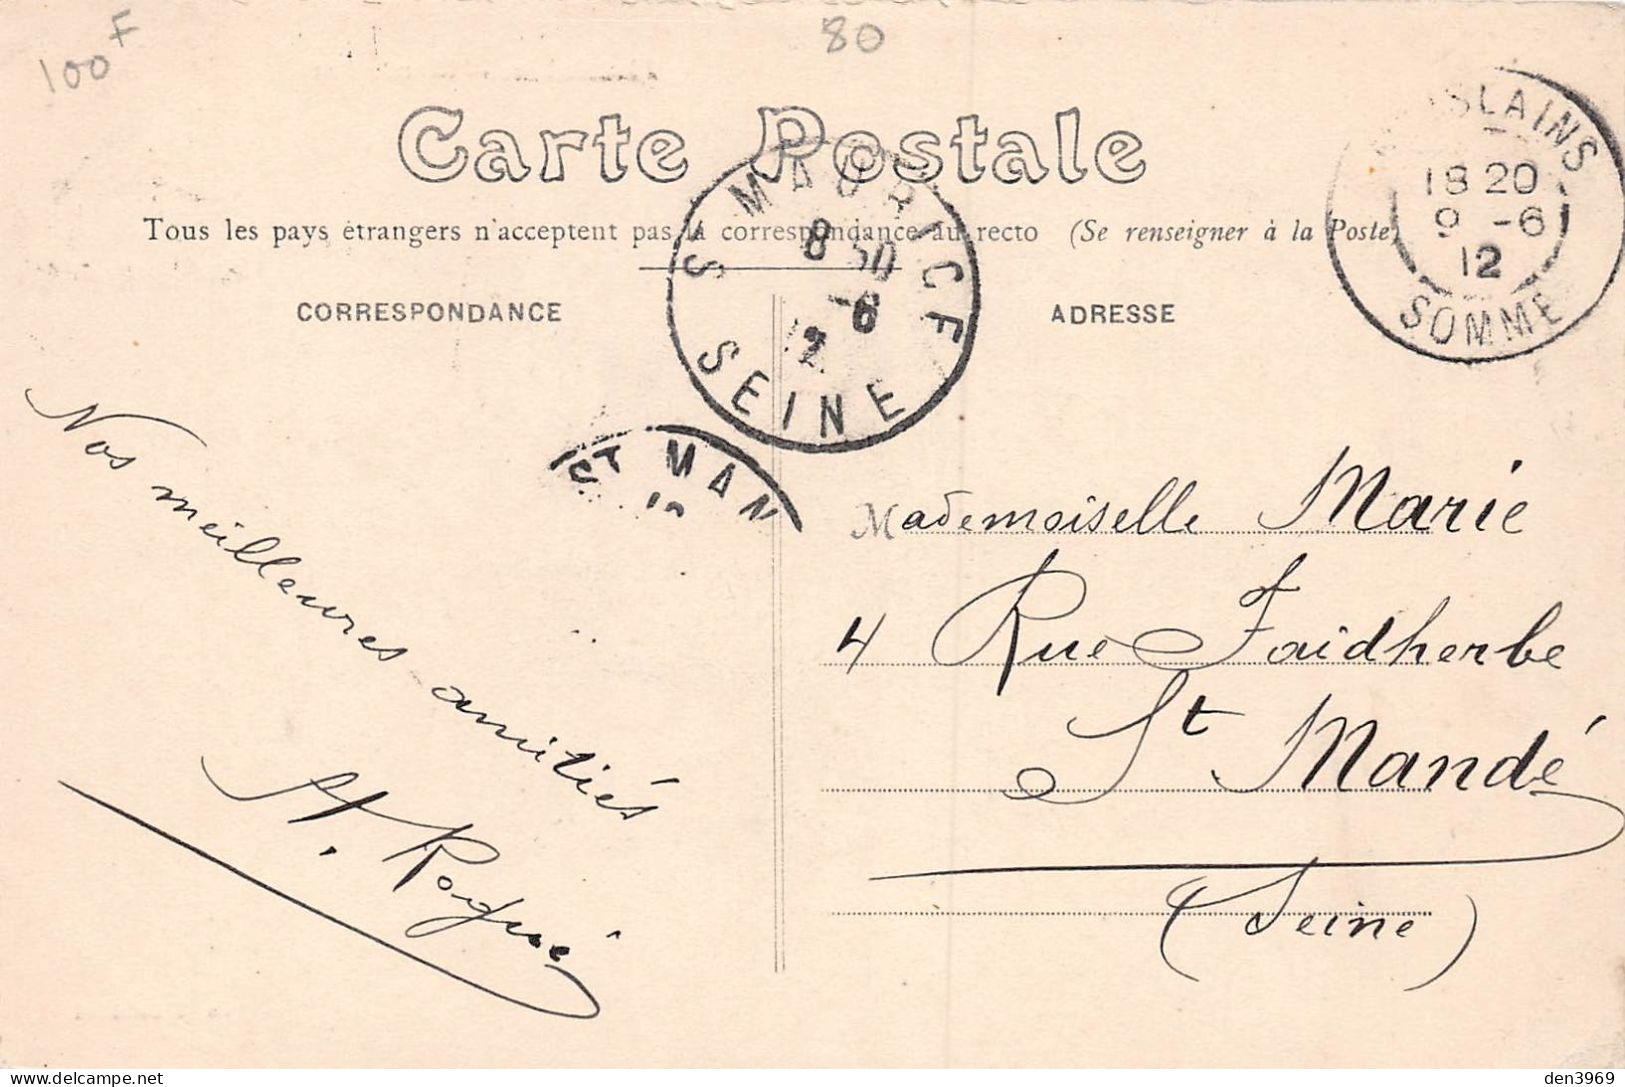 100 F
80
Carte Postale
Tous les pays étrangers n'acceptent pas la correspondance au recto (Se renseigner à la Poste)
CORRESPONDANCE
ADRESSE
ST MAURICE
8 50
-6
12
SEINE
ISLAINS
18 20
9 -6
12
SOMME
ST MAN
Nos meilleures amitiés
Mademoiselle Marie
4 Rue Faidherbe
St Mandé
(Seine)
den3969